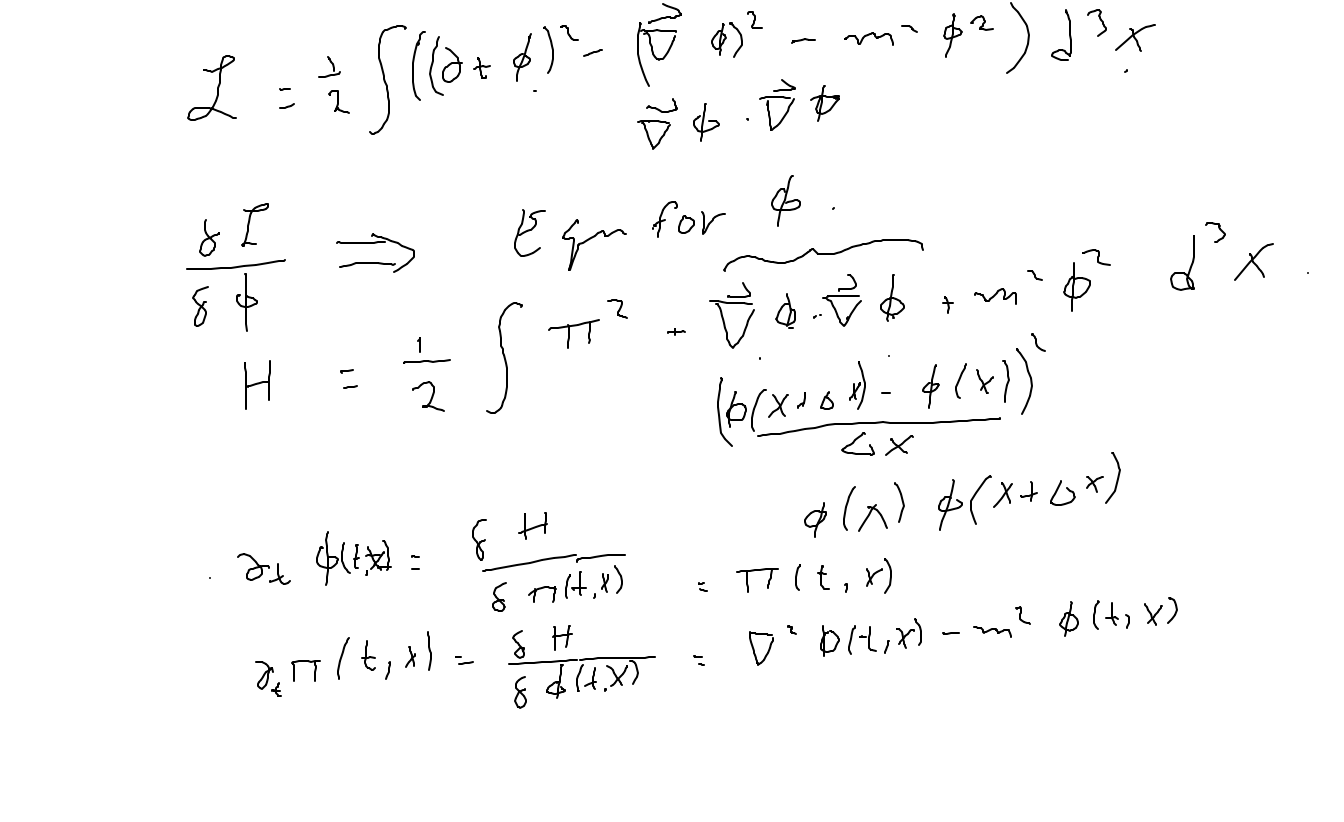 ℒ = ½ ∫ ((∂t ϕ)² − (∇⃗ ϕ)² − m² ϕ²) d³x
∇⃗ ϕ · ∇⃗ ϕ
δL/δϕ ⟹ Eqn for ϕ.
H = ½ ∫ π² + ∇⃗ ϕ · ∇⃗ ϕ + m² ϕ² d³x
(ϕ(x+Δx) − ϕ(x))²/Δx
ϕ(x) ϕ(x+Δx)
∂t ϕ(t,x) = δH/δπ(t,x) = π(t,x)
∂t π(t,x) = δH/δϕ(t,x) = ∇² ϕ(t,x) − m² ϕ(t,x)